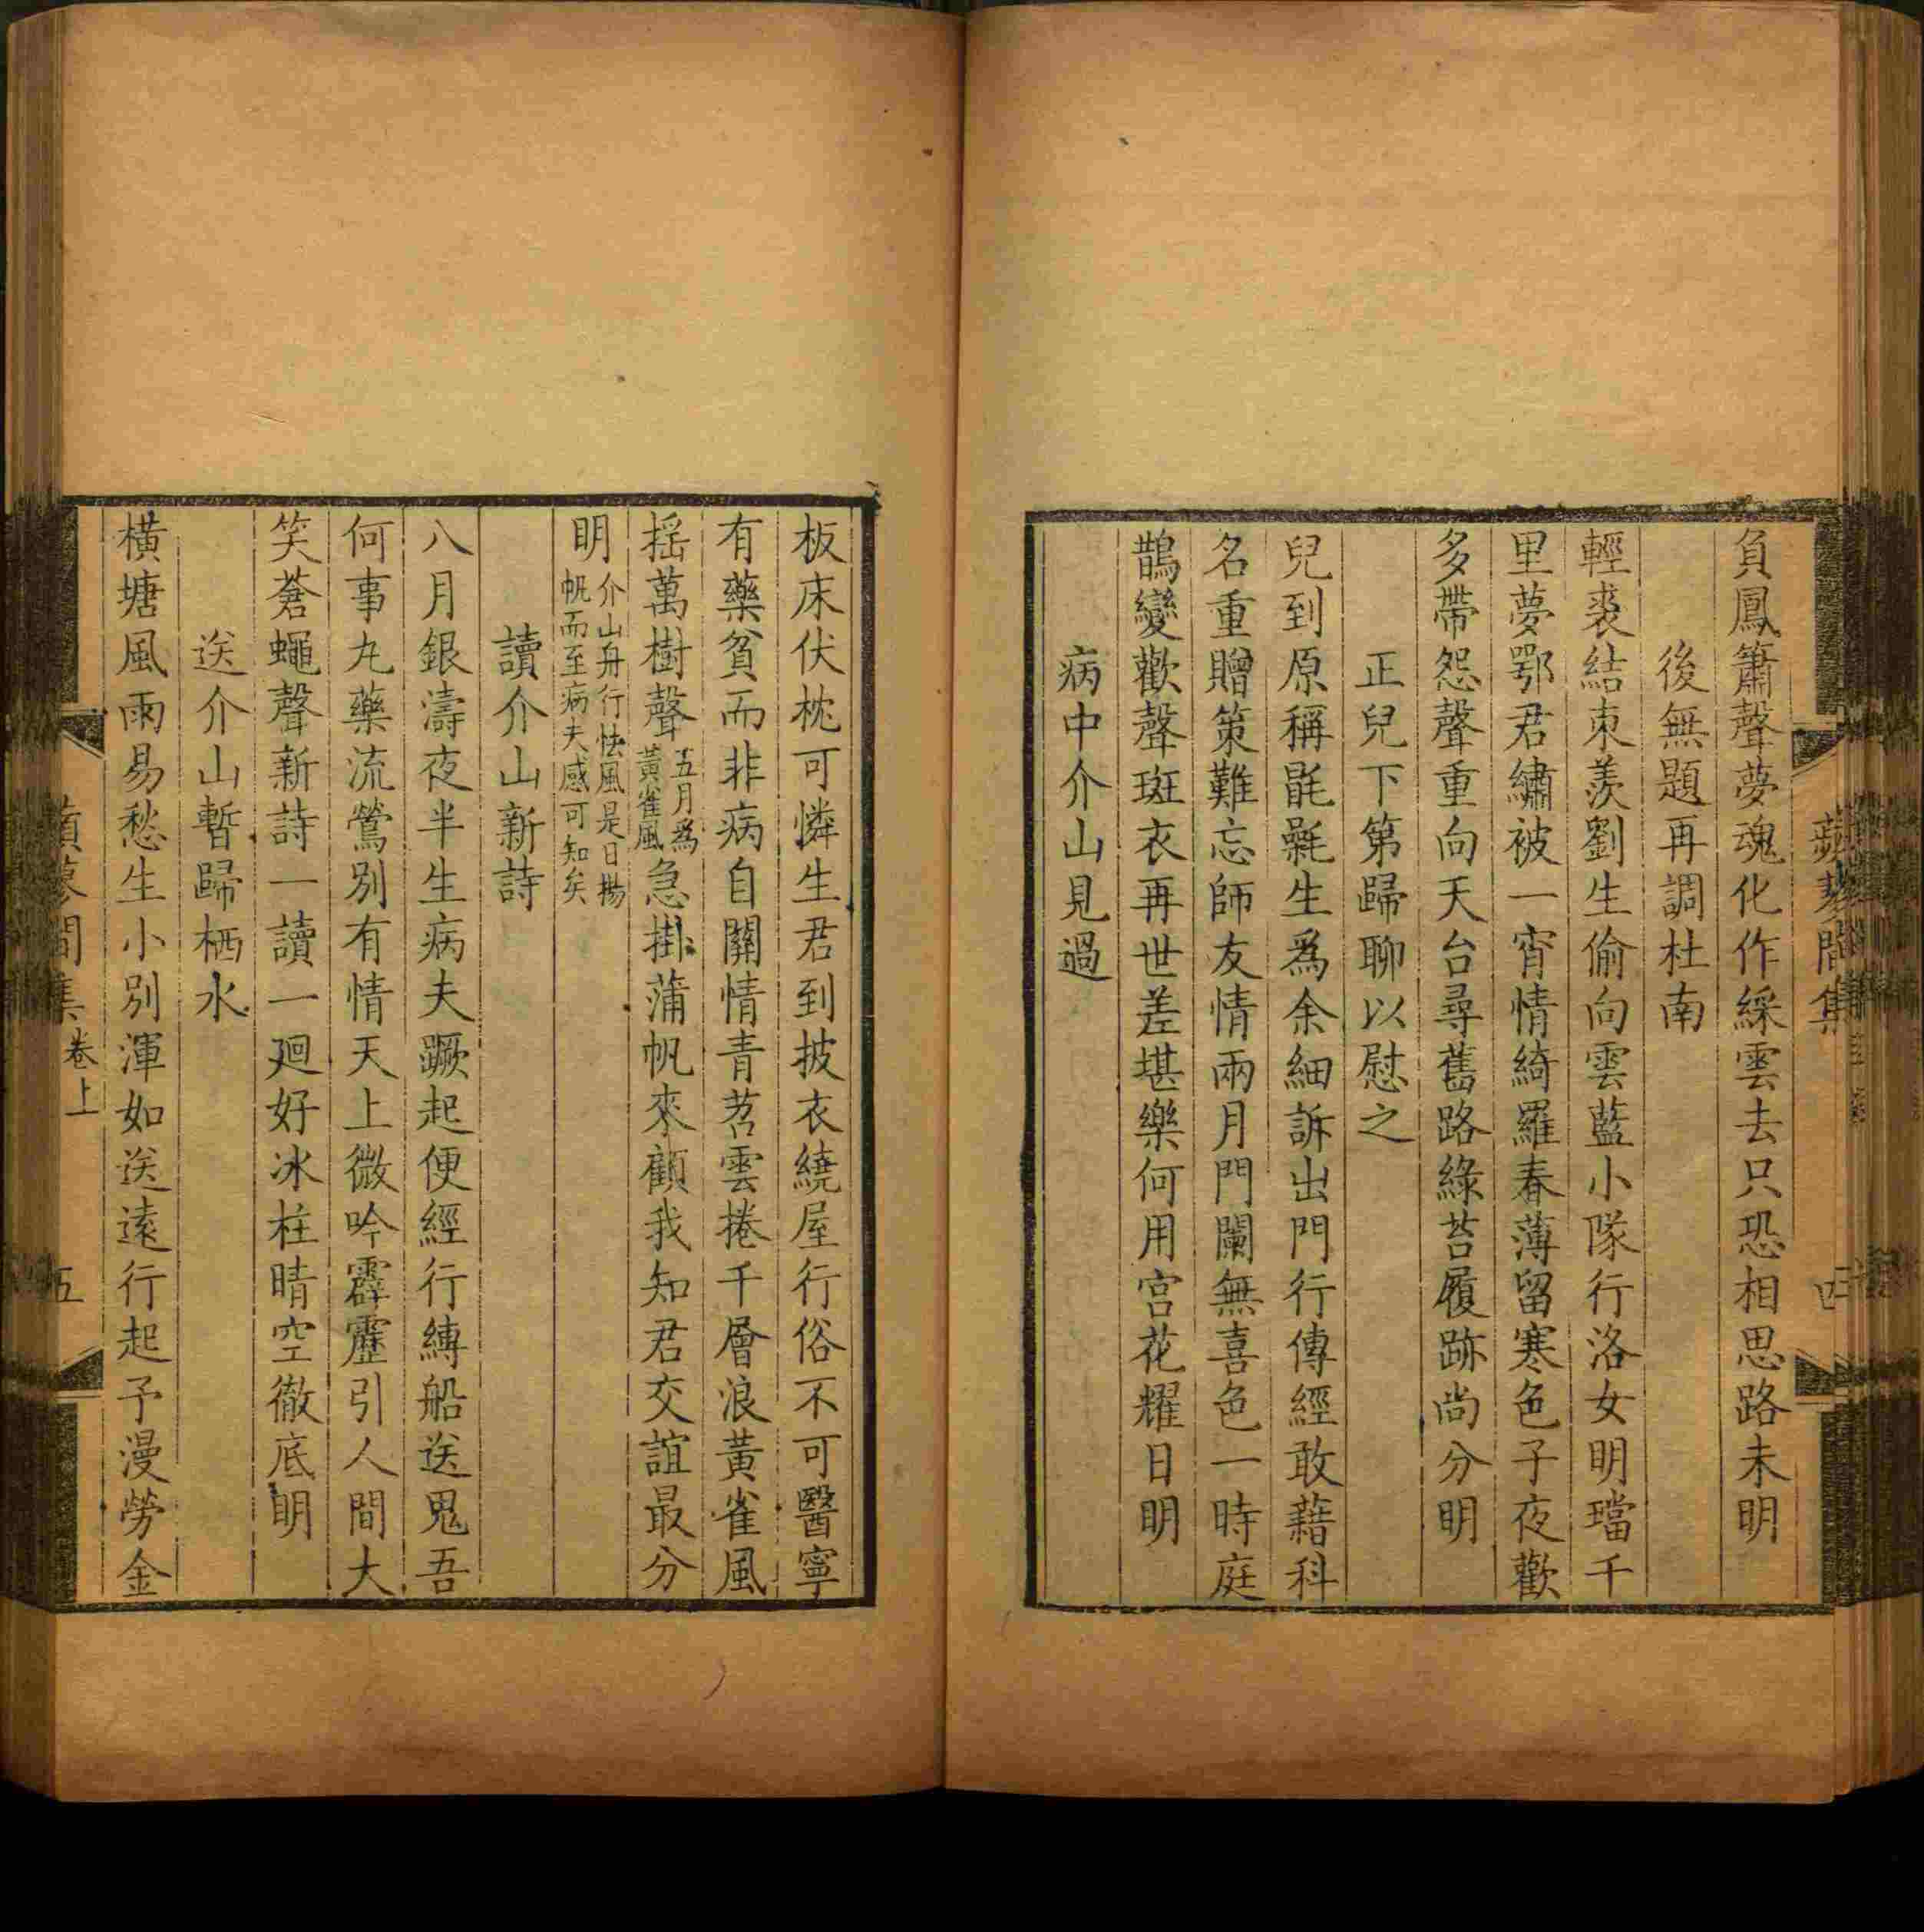 負鳳簫聲夢魂化作綵雲去只恐相思路未明
後無題再調杜南
輕裘結束羨劉生偷向雲藍小隊行洛女明璫千
里夢鄂君繡被一宵情綺羅春薄留寒色子夜歡
多帶怨聲重向天台尋舊路綠苔履跡尚分明
正兒下第歸聊以慰之
兒到原稱毷氉生為余細訴出門行傳經敢藉科
名重贈策難忘師友情兩月門闌無喜色一時庭
鵲變歡聲斑衣再世差堪樂何用宮花耀日明
病中介山見過
板床伏枕可憐生君到披衣繞屋行俗不可醫寧
有藥貧而非病自關情青苕雲捲千層浪黃雀風
搖萬樹聲五月為黃雀風急掛蒲帆來顧我知君交誼最分
明介山舟行怯風是日揚帆而至病夫感可知矣
讀介山新詩
八月銀濤夜半生病夫蹶起便經行縛船送鬼吾
何事丸藥流鶯別有情天上微吟霹靂引人間大
笑蒼蠅聲新詩一讀一迴好冰柱晴空徹底明
送介山暫歸栖水
橫塘風雨易愁生小別渾如送遠行起予漫勞金
卷上
五